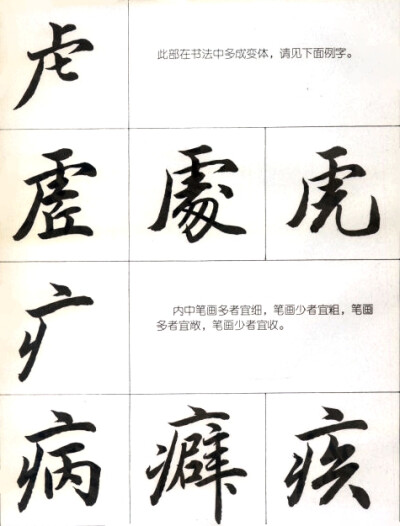 虍
此部在书法中多成变体，请见下面例字。
虚 處 虎
疒
内中笔画多者宜细，笔画少者宜粗，笔画
多者宜敞，笔画少者宜收。
病 癖 疾